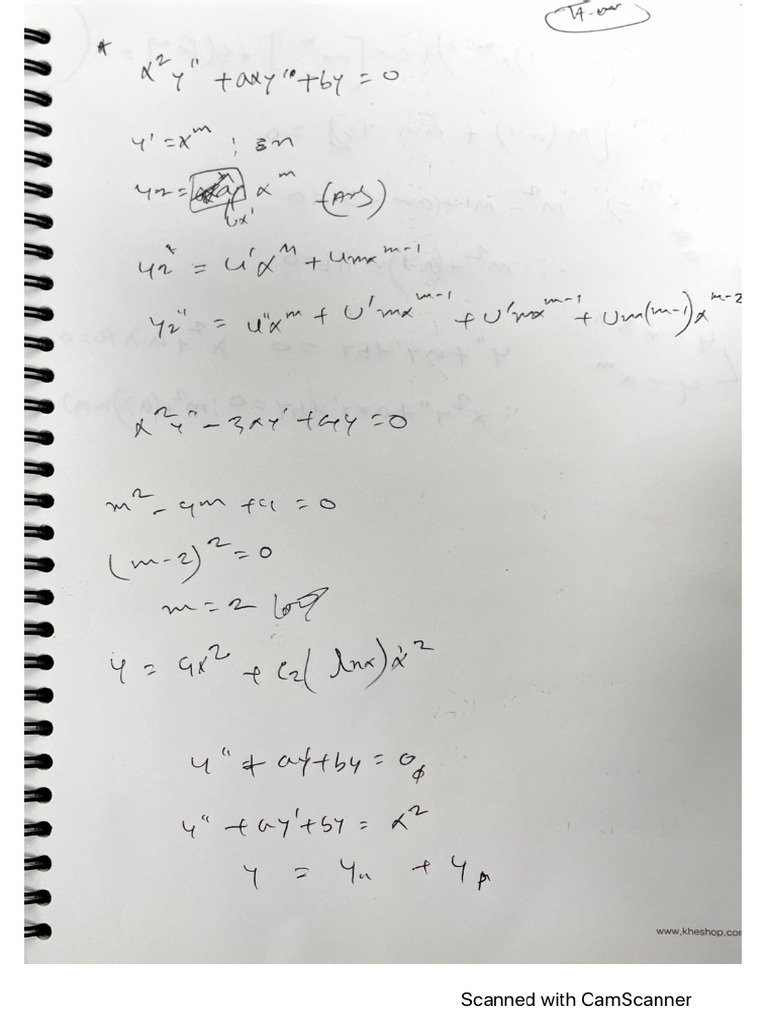 x²y" + axy' + by = 0
y' = x^m ;
y2 = x^m (Ans)
ux'
y2' = u'x^m + umx^{m-1}
y2" = u"x^m + u'mx^{m-1} + u'mx^{m-1} + um(m-1)x^{m-2}
x²y" - 3xy' + 4y = 0
m² - 4m + 4 = 0
(m-2)² = 0
m = 2
y = c1x² + c2(lnx)x²
y" + ay' + by = 0
y" + ay' + by = x²
y = yh + yp
www.kheshop.co
Scanned with CamScanner